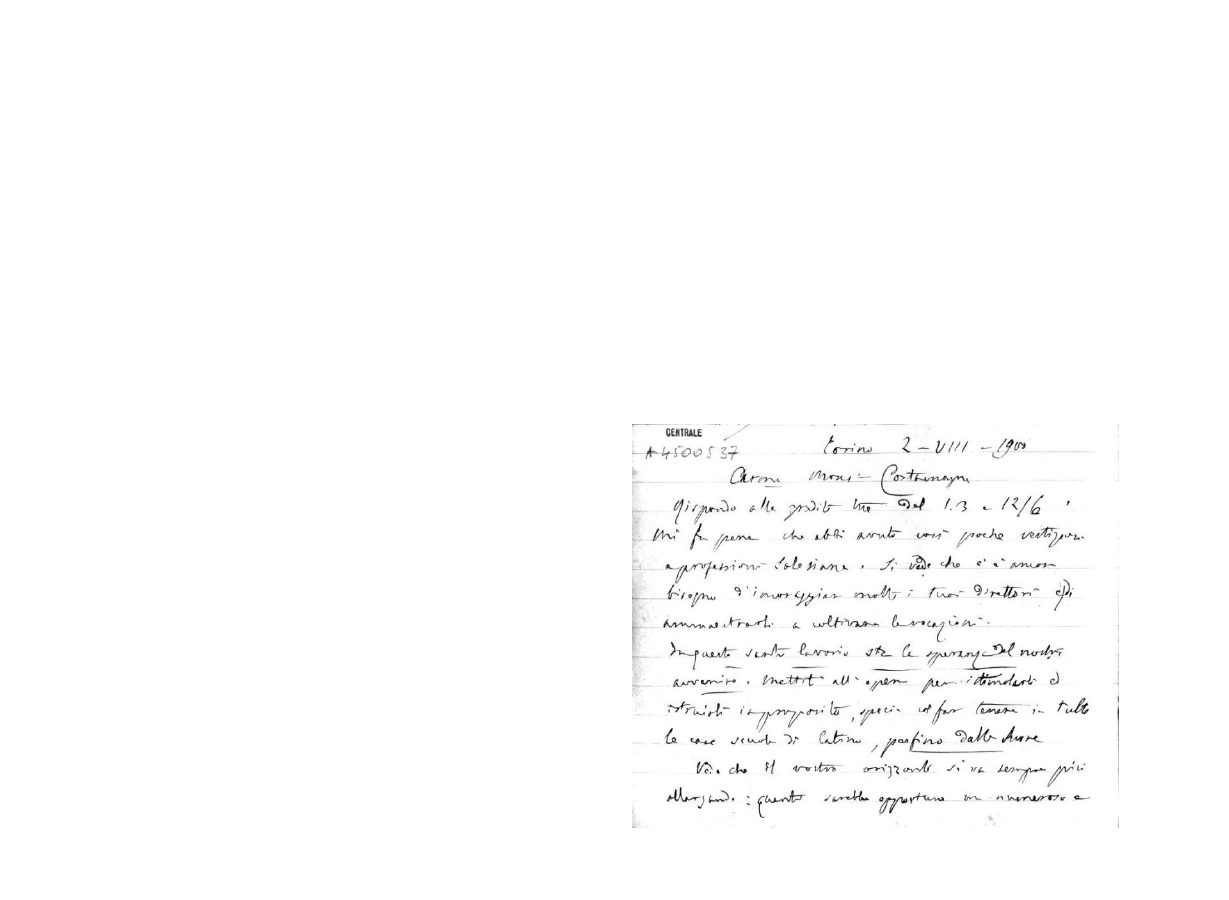 CENTRALE
A 4500537
Torino 2-VIII-1900
Carome Mons= Costamagna
Rispondo alle gradite tue del 1.3 e 12/6
Mi fa pena che abbi avuto così poche vestizioni
e professioni Salesiane. Si vede che c'è ancora
bisogno d'incoraggiar molto i tuoi Direttori e di
ammaestrarli a coltivare le vocazioni.
In questo santo lavorio sta le speranze del nostro
avvenire. Mettiti all'opera per istimolarli ed
istruirli in proposito, specie col far tenere in tutte
le case scuola di latino, perfino dalle Suore
Vedo che il vostro orizzonte si va sempre più
allargando: quanto sarebbe opportuno un numeroso e